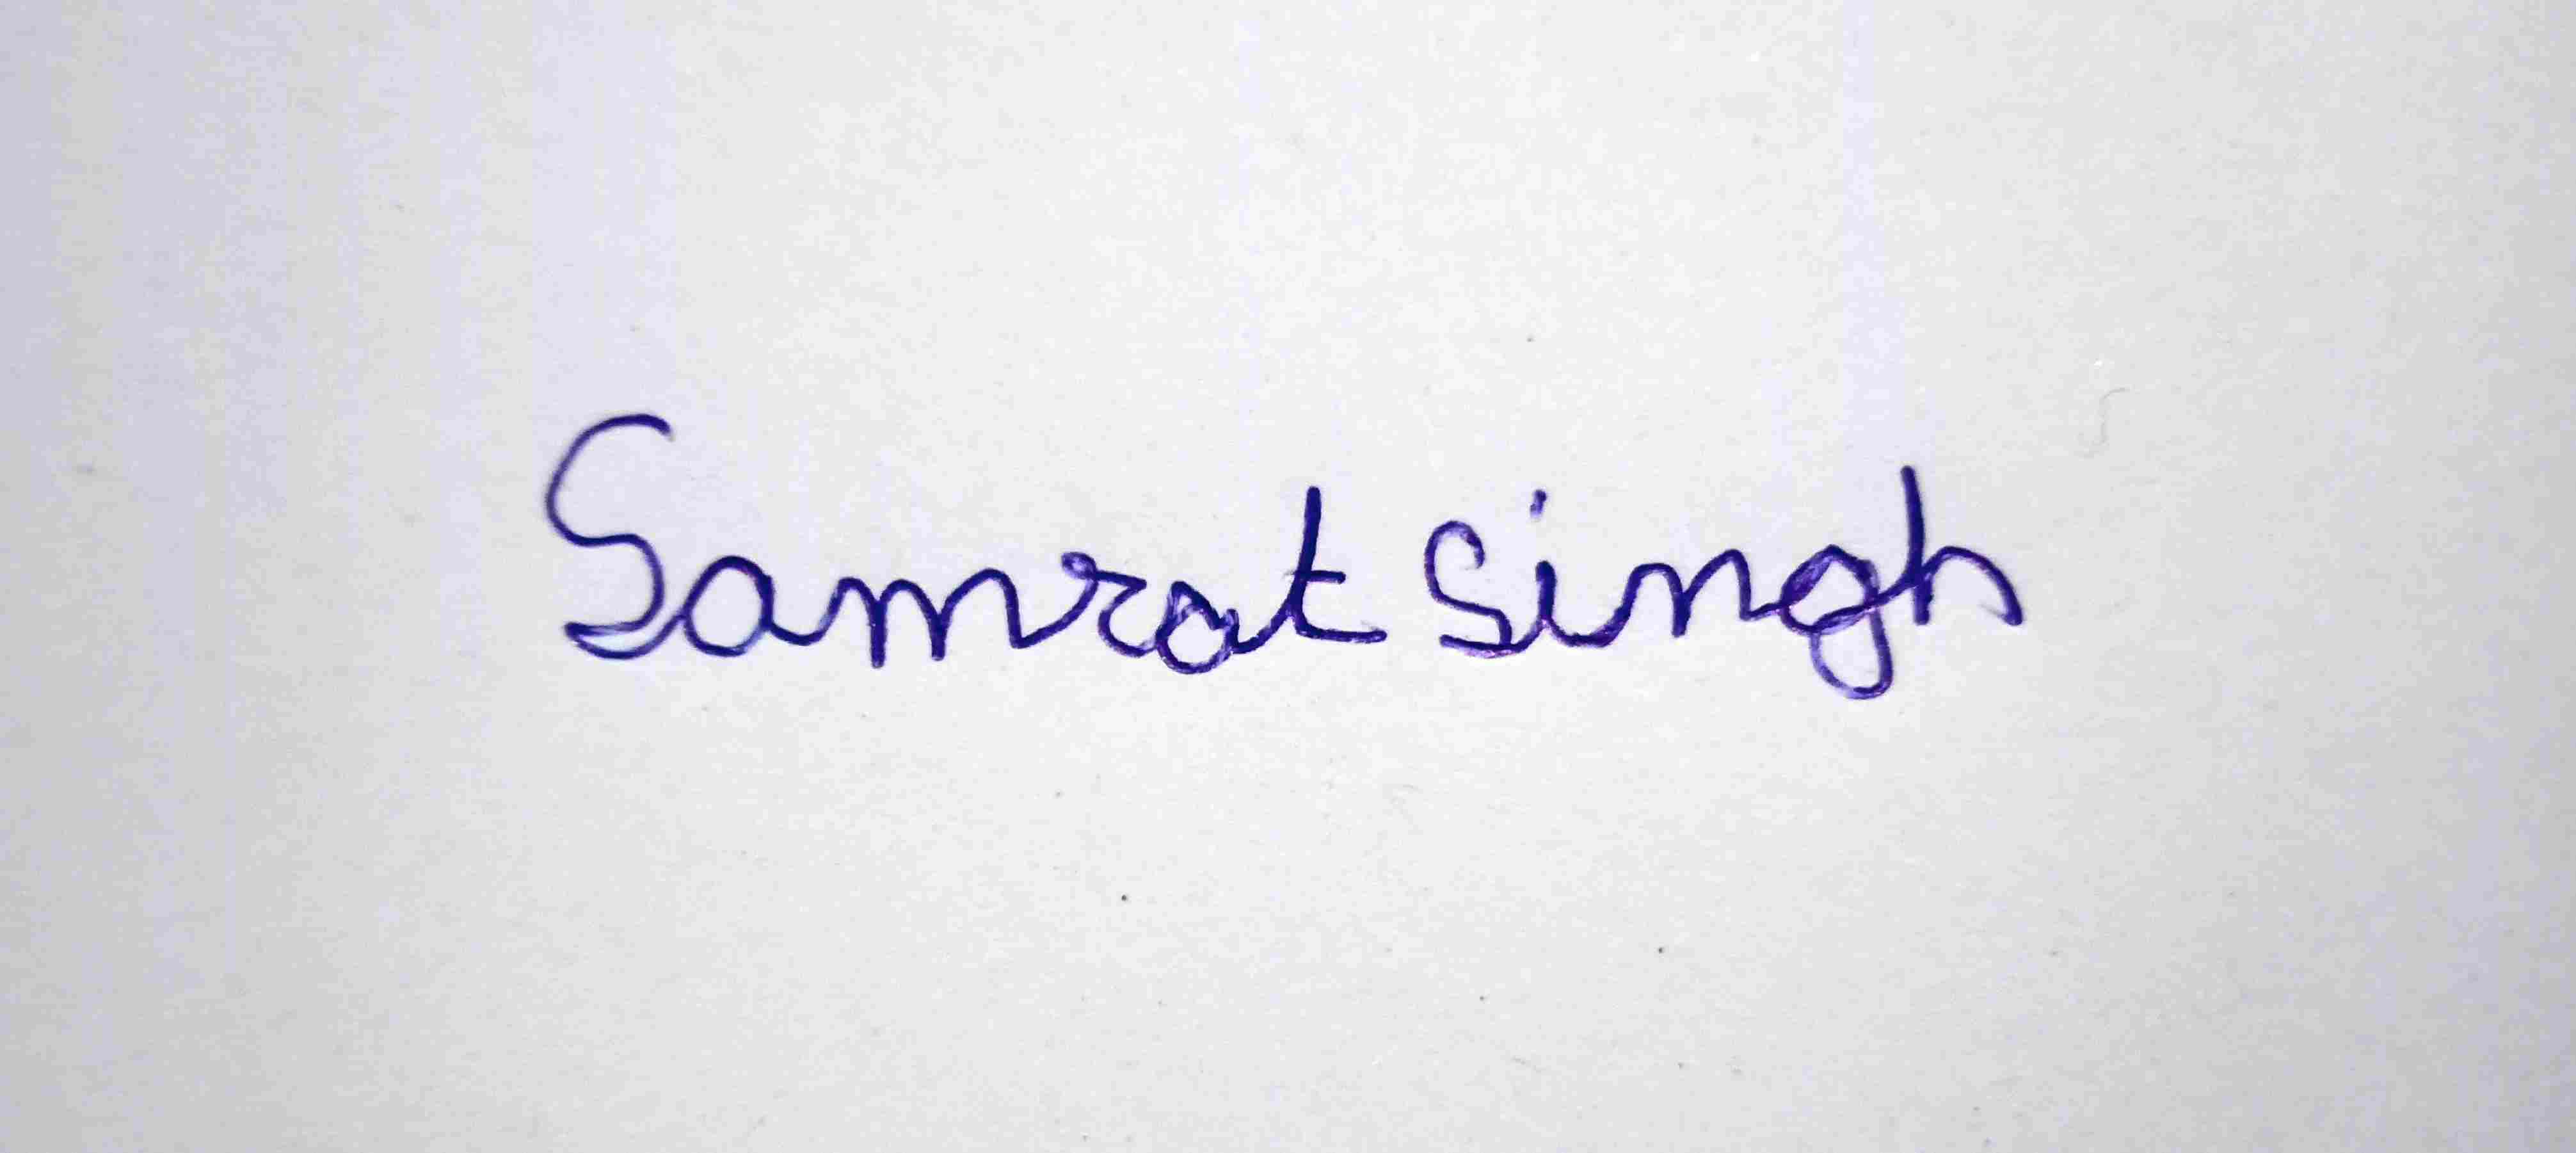 Samrat singh